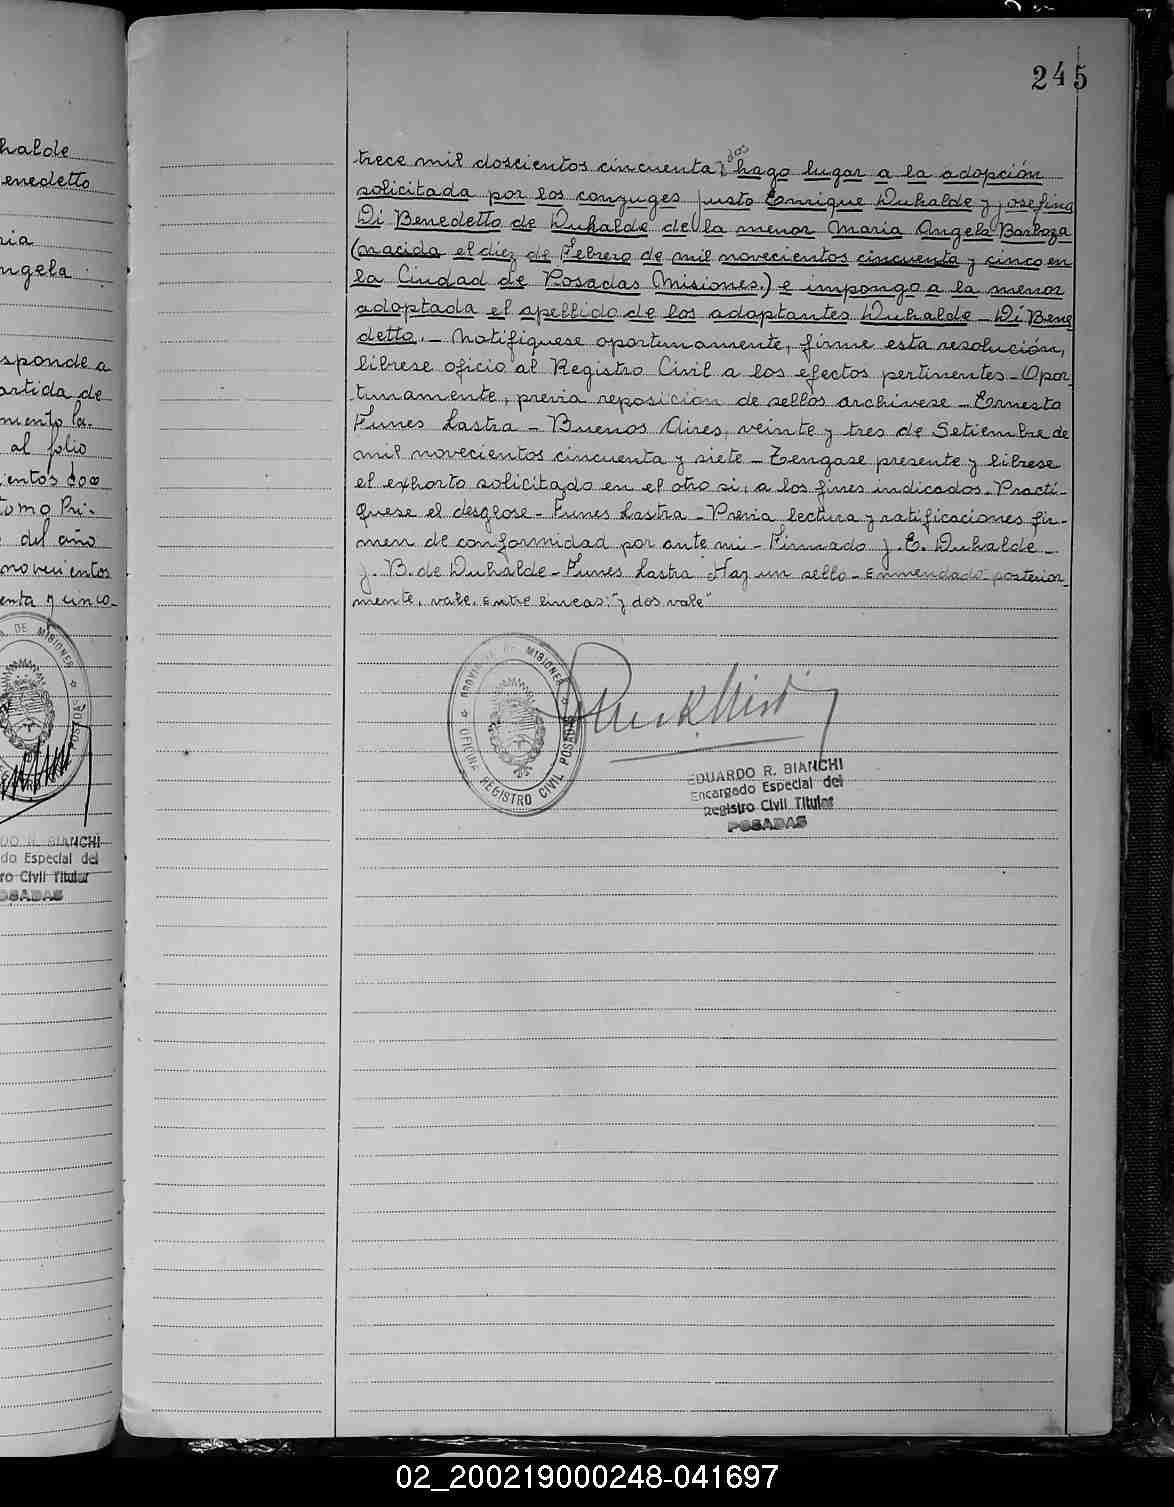 halde
enedetto
ria
ngela
sponde a
artida de
miento la-
al folio
ientos doce
tomo Pri-
del año
novecientos
enta y cinco-
DE MISIONES
POSADAS
DO R. BIANCHI
do Especial del
ro Civil Titular
OSADAS
245
trece mil doscientos cincuenta y dos hago lugar a la adopción
solicitada por los conyuges Justo Enrique Duhalde y Josefina
Di Benedetto de Duhalde de la menor Maria Angela Barboza
(nacida el diez de Febrero de mil novecientos cincuenta y cinco en
la Ciudad de Posadas (Misiones.) e impongo a la menor
adoptada el apellido de los adoptantes Duhalde - Di Bene
detto. - Notifíquese oportunamente, firme esta resolución,
líbrese oficio al Registro Civil a los efectos pertinentes - Opor-
tunamente, previa reposición de sellos archívese - Ernesto
Funes Lastra - Buenos Aires, veinte y tres de Setiembre de
mil novecientos cincuenta y siete - Tengase presente y librese
el exhorto solicitado en el otro si, a los fines indicados. Practí-
quese el desglose - Funes Lastra - Previa lectura y ratificaciones fir-
men de conformidad por ante mi - Firmado J. E. Duhalde -
J. B. de Duhalde - Funes Lastra Hay un sello - Enmendado - posterior
mente, vale. Entre lineas: "y dos vale"
PROVINCIA DE MISIONES
OFICINA REGISTRO CIVIL POSADAS
EDUARDO R. BIANCHI
Encargado Especial del
Registro Civil Titular
POSADAS
02_200219000248-041697